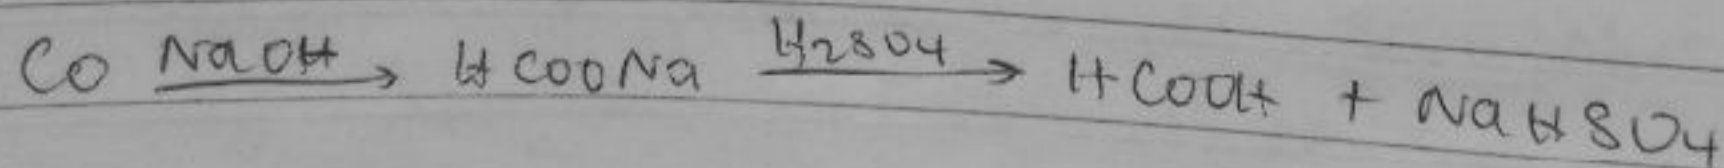 CO NaOH → HCOONa H2SO4 → HCOOH + NaHSO4